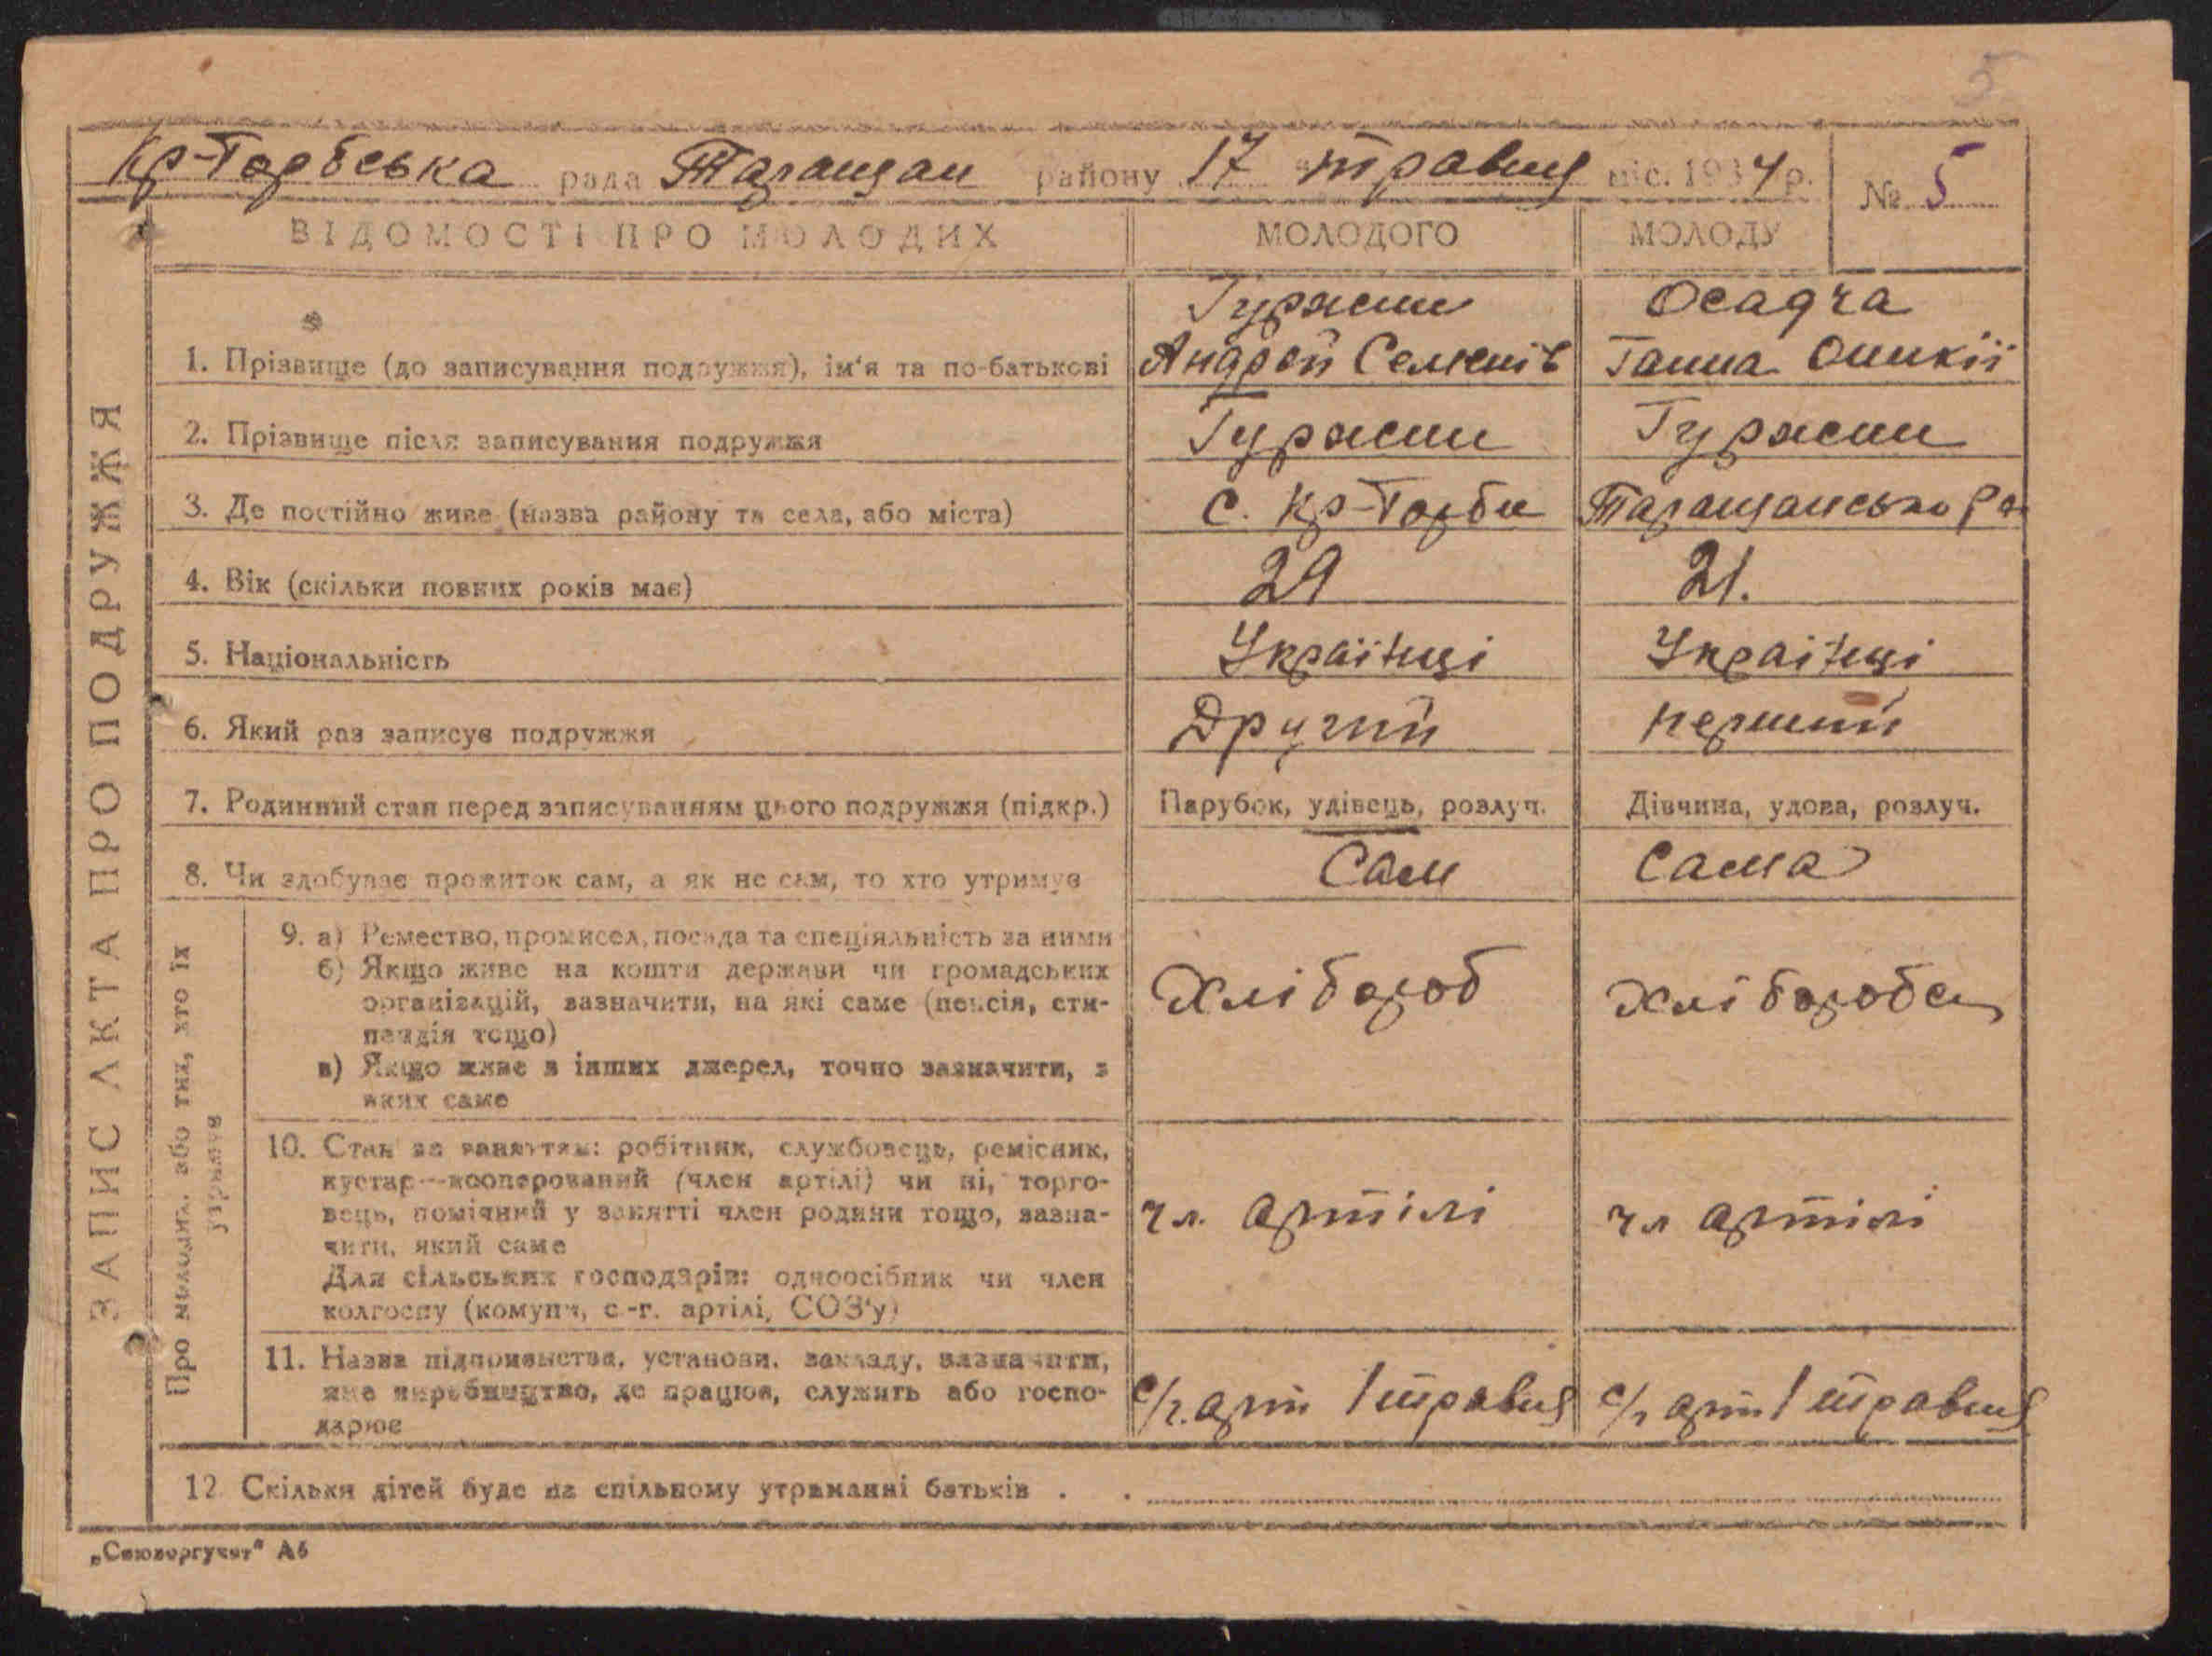 5
Кр-Торбська рада Таращан району 17 травня міс. 1934 р. № 5
ЗАПИС АКТА ПРО ПОДРУЖЖЯ
ВІДОМОСТІ ПРО МОЛОДИХ МОЛОДОГО МОЛОДУ
Осадча
1. Прізвище (до записування подружжя), ім'я та по-батькові Андрій Семенів Ганна Оникії
2. Прізвище після записування подружжя
3. Де постійно живе (назва району та села, або міста) С. Кр-Торби Таращансько Ра
4. Вік (скільки повних років має) 29 21.
5. Національність Українці Українці
6. Який раз записує подружжя Другий перший
7. Родинний стан перед записуванням цього подружжя (підкр.) Парубок, удівець, розлуч. Дівчина, удова, розлуч.
8. Чи здобуває прожиток сам, а як не сам, то хто утримує Сам Сама
Про молодих, або тих, хто їх
утримує
9. а) Ремество, промисел, посада та спеціяльність за ними
б) Якщо живе на кошти держави чи громадських
організацій, зазначити, на які саме (пенсія, сти-
пендія тощо)
Хлібороб Хліборобка
в) Якщо живе з інших джерел, точно зазначити, з
яких саме
10. Стан за заняттям: робітник, службовець, ремісник,
кустар—кооперований (член артілі) чи ні, торго-
вець, помічний у занятті член родини тощо, зазна-
чити, який саме
чл. артілі чл артілі
Для сільських господарів: одноосібник чи член
колгоспу (комуни, с.-г. артілі, СОЗ'у)
11. Назва підприємства, установи, закладу, зазначити,
яке виробництво, де працює, служить або госпо-
дарює
с/г. арт 1 травня с/г арт 1 травня
12. Скільки дітей буде на спільному утриманні батьків
„Союзоргучет" А6